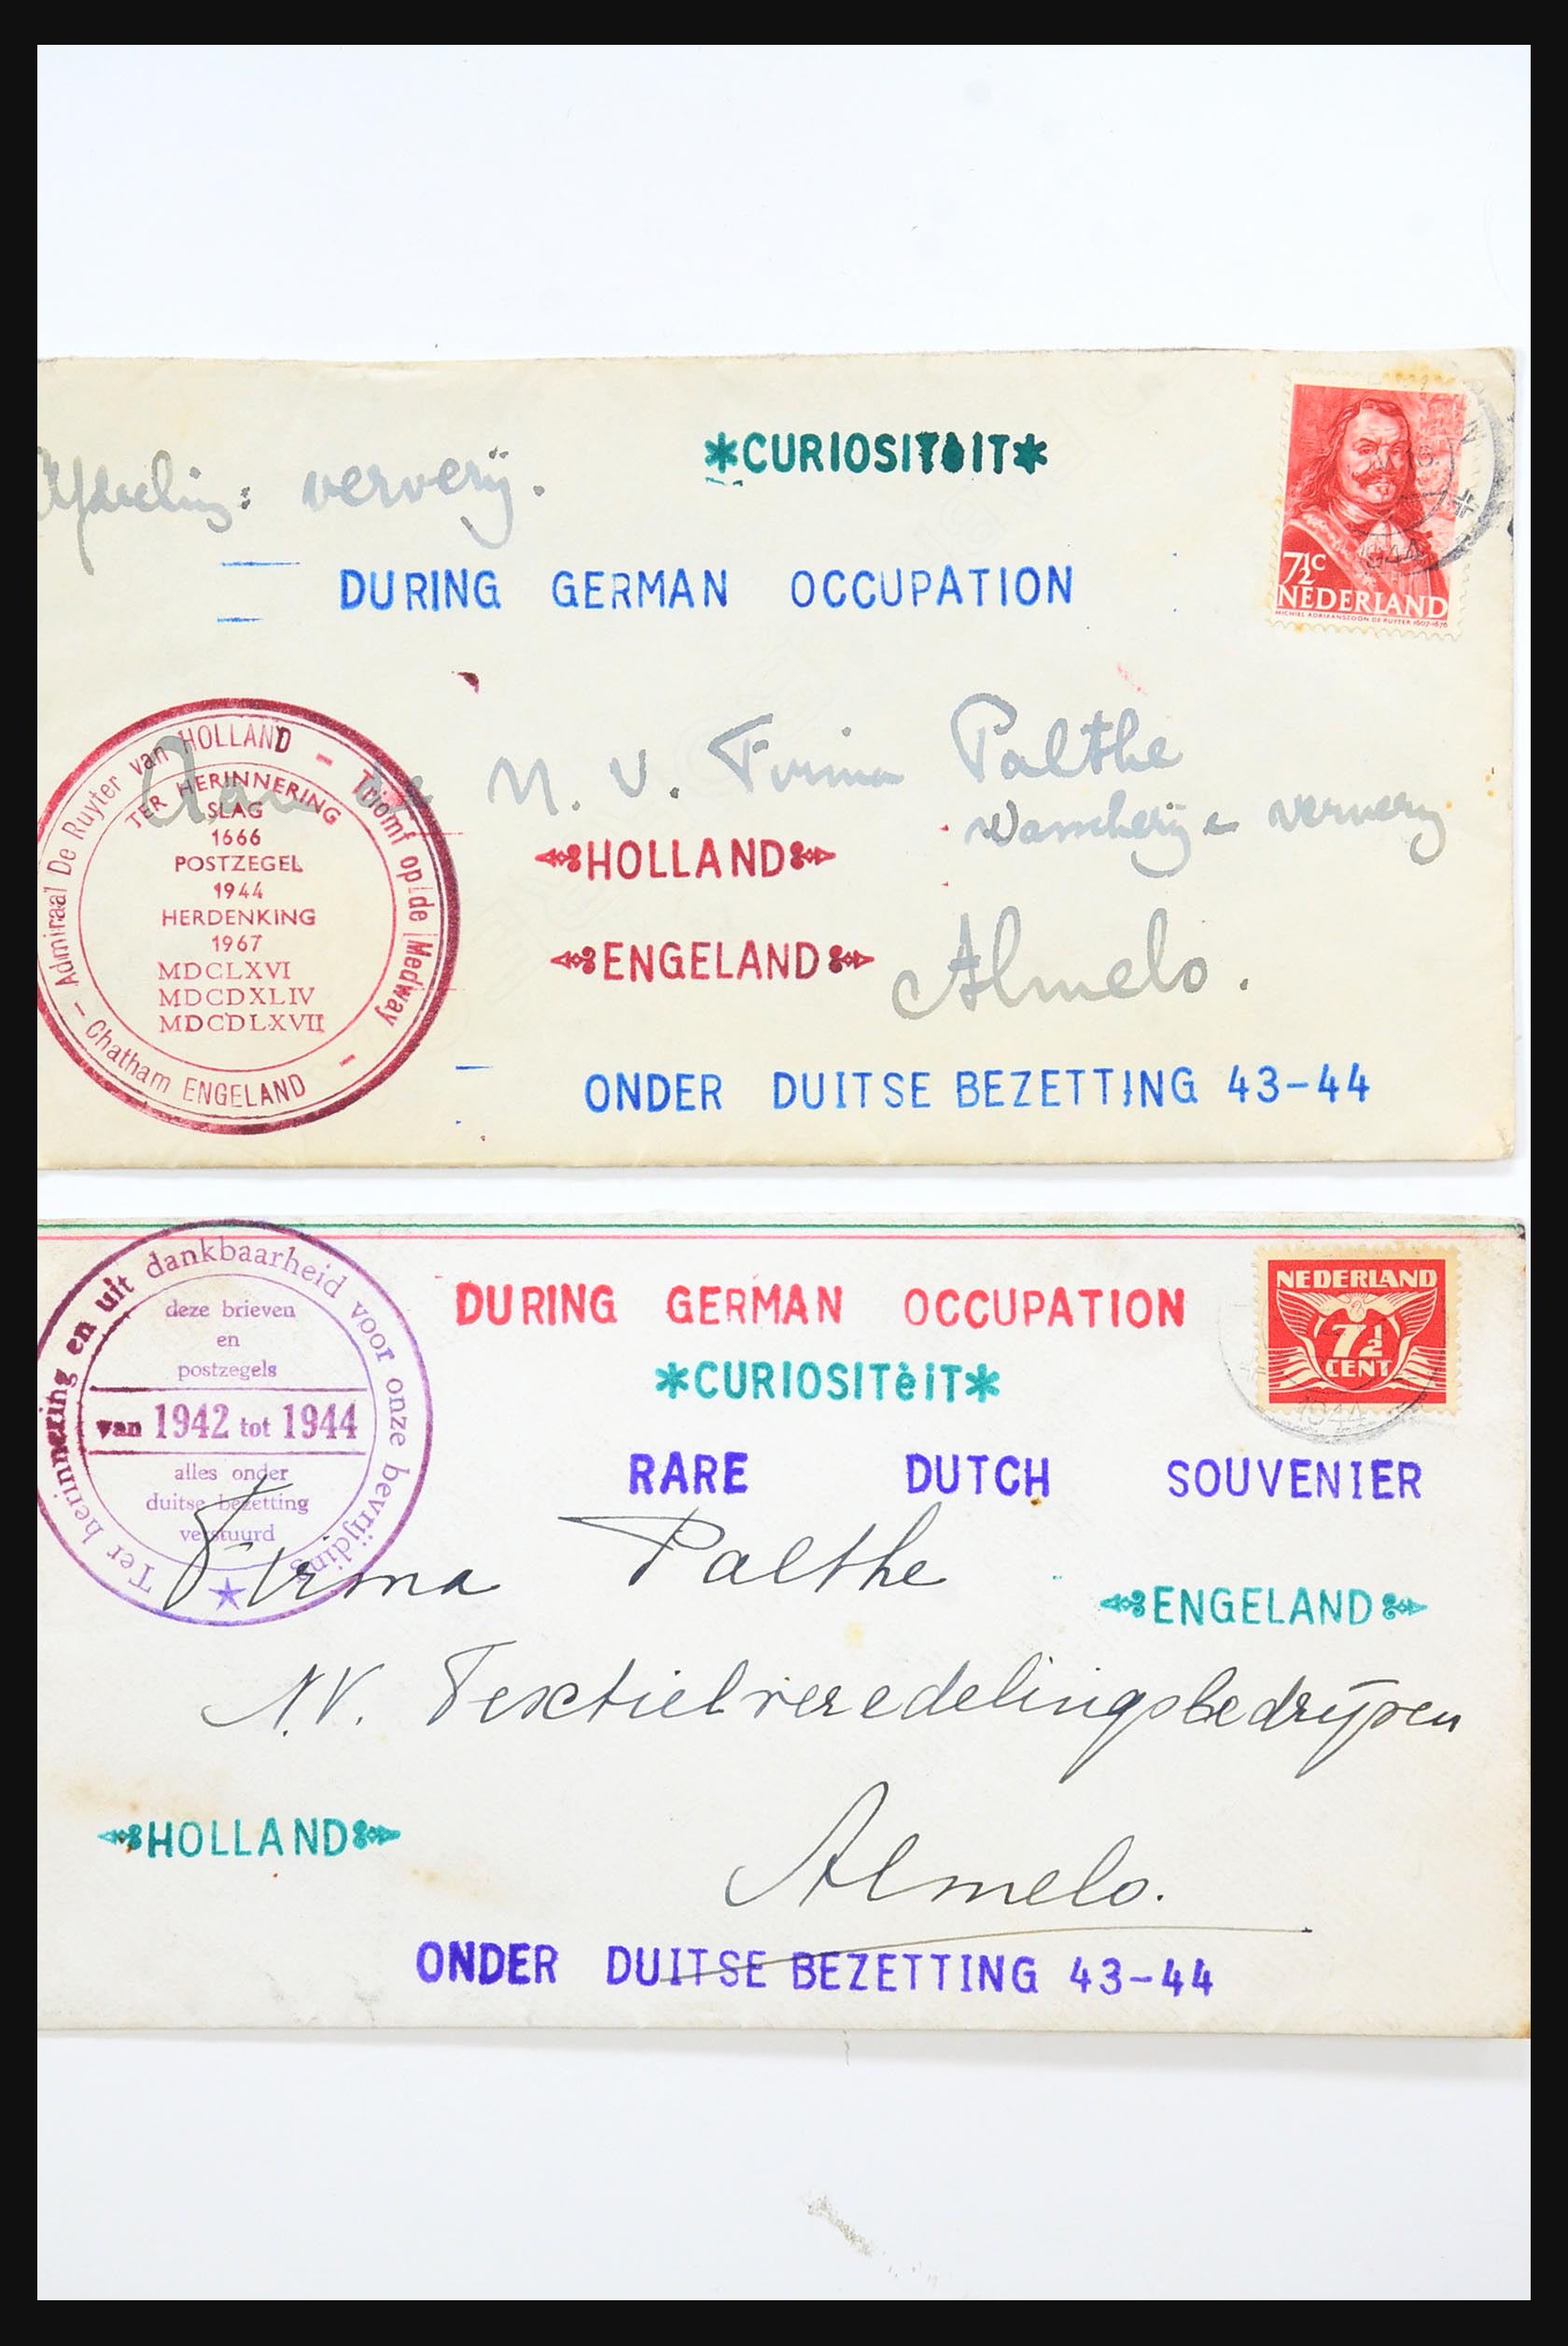 Afdeeling: ververij.
*CURIOSITèIT*
7½c
NEDERLAND
MICHIEL ADRIAANSZOON DE RUYTER 1607-1676
1944
DURING GERMAN OCCUPATION
Admiraal De Ruyter van HOLLAND — Triomf op de Medway — Chatham ENGELAND —
TER HERINNERING
SLAG
1666
POSTZEGEL
1944
HERDENKING
1967
MDCLXVI
MDCDXLIV
MDCDLXVII
Aan de N. V. Firma Palthe
Wasscherij en ververij
HOLLAND
ENGELAND
Almelo.
ONDER DUITSE BEZETTING 43-44
Ter herinnering en uit dankbaarheid voor onze bevrijding
deze brieven
en
postzegels
van 1942 tot 1944
alles onder
duitse bezetting
verstuurd
DURING GERMAN OCCUPATION
NEDERLAND
7½
CENT
1944
*CURIOSITèIT*
RARE DUTCH SOUVENIER
Firma Palthe
ENGELAND
N.V. Textielveredelingsbedrijven
HOLLAND
Almelo.
ONDER DUITSE BEZETTING 43-44